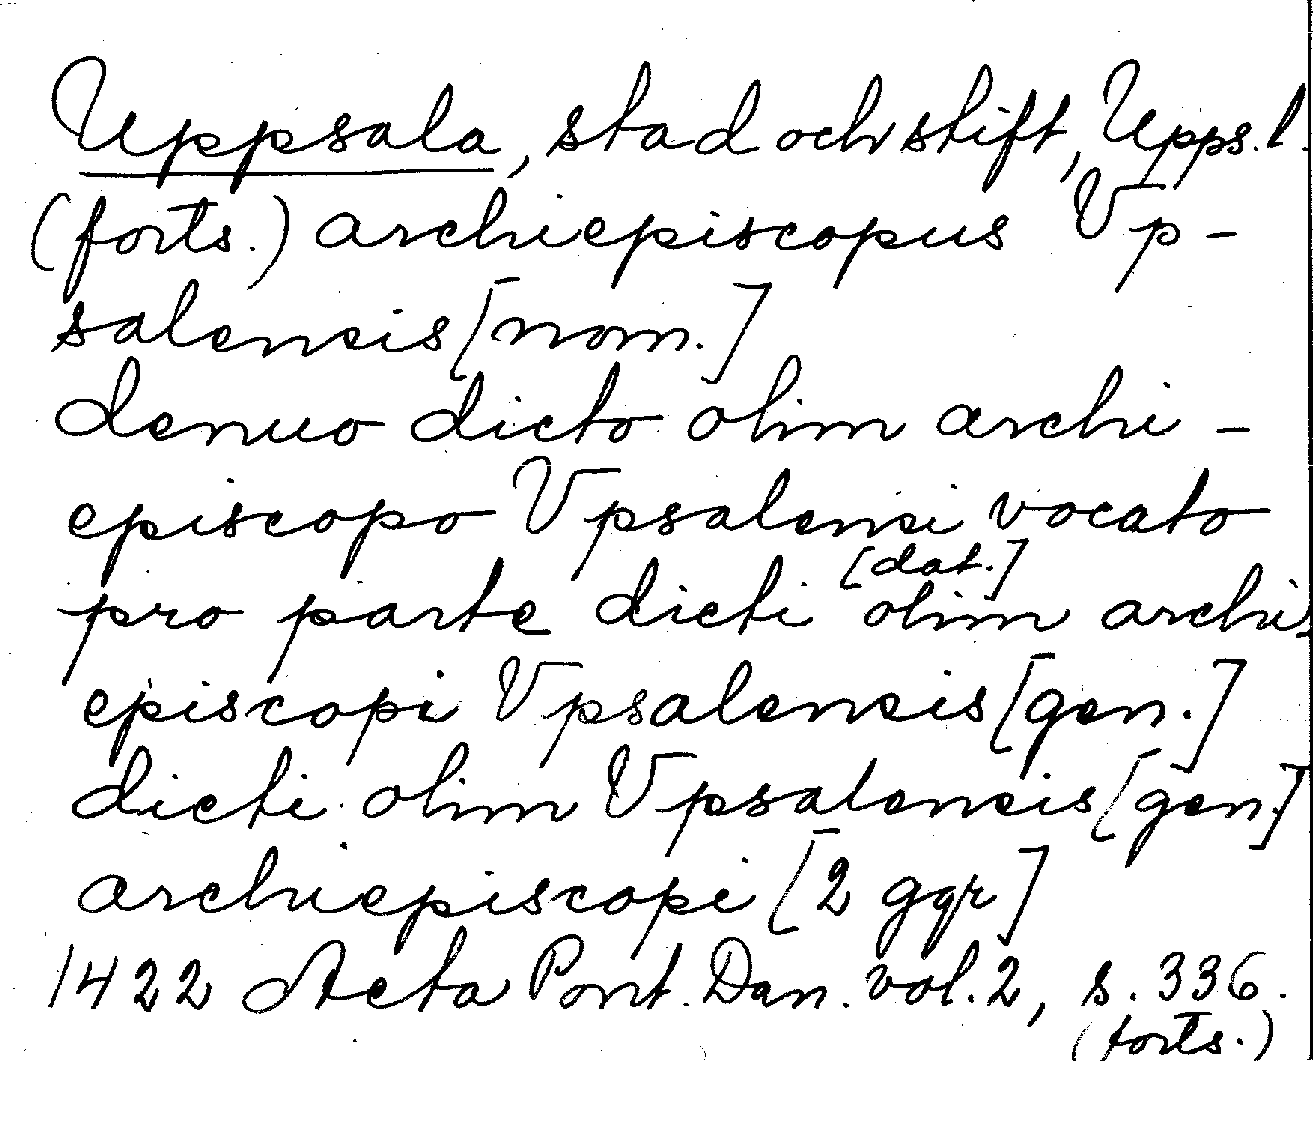 Uppsala, stad och stift, Upps. l.
(forts.) archiepiscopus Vp-
salensis [nom.]
denuo dicto olim archi-
episcopo Vpsalensi vocato
[dat.]
pro parte dicti olim archi-
episcopi Vpsalensis [gen.]
dicti olim Vpsalensis [gen.]
archiepiscopi [2 ggr]
1422 Acta Pont. Dan. vol. 2, s. 336.
(forts.)